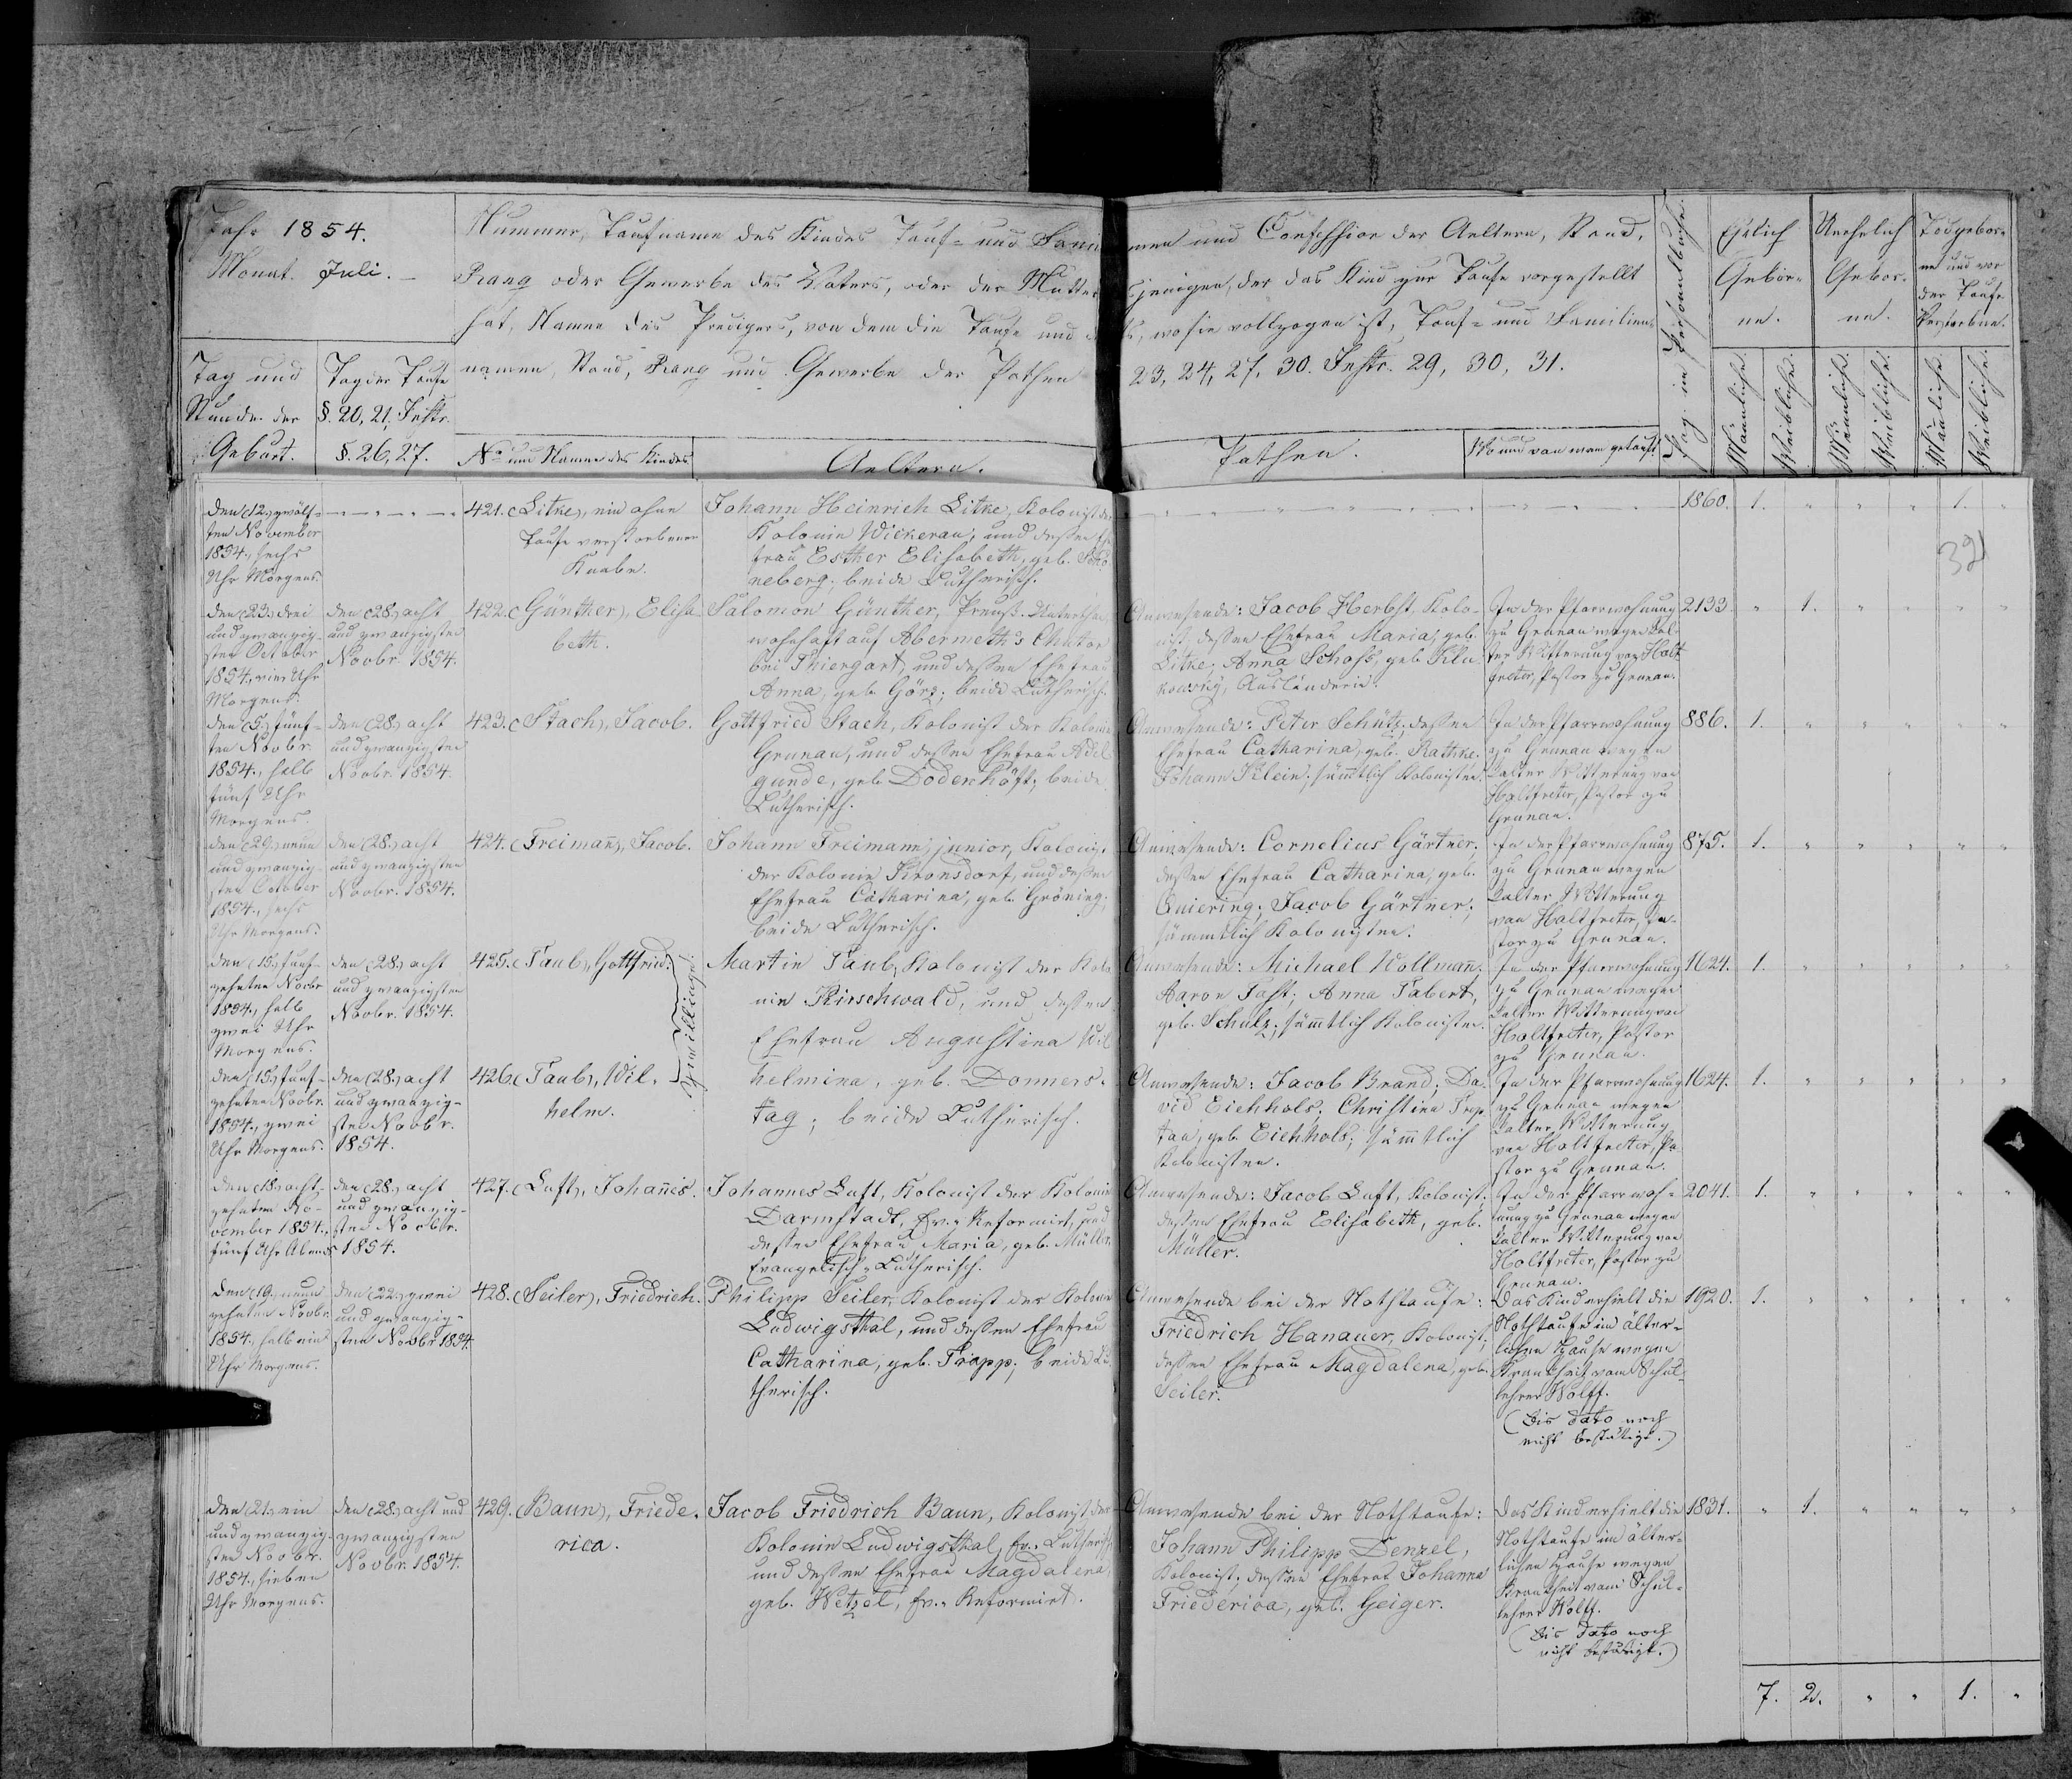 Jahr 1854.
Monat. Juli. —
Nummer, Taufname des Kindes Tauf- und Fami
Rang oder Gewerbe des Vaters, oder der Mutter
hat, Namen des Predigers, von dem die Taufe und
namen, Stand, Rang und Gewerbe der Pathen
Tag und
Stunde der
Geburt.
Tag der Taufe
§. 20, 21, Instr.
§. 26, 27.
No und Namen des Kindes
Aeltern.
men und Confession der Aeltern, Stand,
jenigen, der das Kind zur Taufe vorgestellt
wo sie vollzogen ist, Tauf- und Familien-
23, 24, 27, 30. Instr. 29, 30, 31.
Pathen.
Wo und von wem getauft.
Pag. im Personalbuche.
Ehelich
Gebor-
ne.
Unehelich
Gebor-
ne.
Todgebor-
ne und vor
der Taufe
Verstorbne.
Männliche.
Weibliche.
Männliche.
Weibliche.
Männliche.
Weibliche.
den (12.) zwölf-
ten November
1854., sechs
Uhr Morgens.
421. (Litke), ein ohne
Taufe verstorbener
Knabe.
Johann Heinrich Litke, Kolonist der
Kolonie Wickerau, und dessen Ehe
frau Esther Elisabeth, geb. Schö
neberg; beide Lutherisch.
1860. 1. " " " 1. "
321
den (23.) drei
und zwanzig-
sten October
1854., vier Uhr
Morgens.
den (28.) acht
und zwanzigsten
Novbr. 1854.
422. (Günther), Elisa-
beth.
Salomon Günther, Preuß. Unterthan,
wohnhaft auf Abermeth's Chutor
bei Thiergart, und dessen Ehefrau
Anna, geb. Görz; beide Lutherisch.
Anwesende: Jacob Herbst, Kolo-
nist, dessen Ehefrau Maria, geb.
Litke; Anna Schoß, geb.
kowsky, Ausländerin.
In der Pfarrwohnung
zu Grunau wegen kal-
ter Witterung von Holt
freter, Pastor zu Grunau.
2133 " 1. " " " "
den (5.) fünf-
ten Novbr.
1854., halb
fünf Uhr
Morgens
den (28.) acht
und zwanzigsten
Novbr. 1854.
423. (Stach), Jacob.
Gottfried Stach, Kolonist der Kolonie
Grunau, und dessen Ehefrau Adel
gunde, geb. Dodenhöft; beide
Lutherisch.
Anwesende: Peter Schütz; dessen
Ehefrau Catharina, geb. Rattke;
Johann Klein; sämtlich Kolonisten.
In der Pfarrwohnung
zu Grunau wegen
kalter Witterung von
Holtfreter, Pastor zu
Grunau.
886. 1. " " " " "
den (29.) neun
und zwanzig-
sten October
1854., sechs
Uhr Morgens.
den (28.) acht
und zwanzigsten
Novbr. 1854.
424. (Freimañ), Jacob.
Johann Freimann, junior, Kolonist
der Kolonie Kronsdorf, und dessen
Ehefrau Catharina, geb. Gröning;
beide Lutherisch.
Anwesende: Cornelius Gärtner;
dessen Ehefrau Catharina, geb.
Quiering; Jacob Gärtner;
sämmtlich Kolonisten.
In der Pfarrwohnung
zu Grunau wegen
kalter Witterung
von Holtfreter, Pa-
stor zu Grunau.
875. 1. " " " " "
den (15.) fünf-
zehnten Novbr
1854., halb
zwei Uhr
Morgens.
den (28.) acht
und zwanzigsten
Novbr. 1854.
425. (Taub), Gottfried.
Zwillinge.
Martin Taub, Kolonist der Kolo
nie Kirschwald, und dessen
Ehefrau Augustina Wil
helmina, geb. Donners-
tag; beide Lutherisch.
Anwesende: Michael Wollmañ;
Aaron Jaßt; Anna Tabert,
geb. Schulz; sämtlich Kolonisten.
In der Pfarrwohnung
zu Grunau wegen
kalter Witterung von
Holtfreter, Pastor
zu Grunau.
1624. 1. " " " " "
den (15.) fünf-
zehnten Novbr.
1854., zwei
Uhr Morgens.
den (28.) acht
und zwanzig-
sten Novbr.
1854.
426. (Taub), Wil-
helm.
Anwesende: Jacob Brand; Da-
vid Eichhols; Christina
geb. Eichhols; sämtlich
Kolonisten.
In der Pfarrwohnung
zu Grunau wegen
kalter Witterung
von Holtfreter, Pa
stor zu Grunau.
1624. 1. " " " " "
den (18.) acht-
zehnten No-
vember 1854.,
fünf Uhr Abends
den (28.) acht
und zwanzig-
sten Novbr.
1854.
427. (Luft), Johañes.
Johannes Luft, Kolonist der Kolonie
Darmstadt, Ev.-Reformirt, und
dessen Ehefrau Maria, geb. Müller,
Evangelisch-Lutherisch.
Anwesende: Jacob Luft, Kolonist;
dessen Ehefrau Elisabeth, geb.
Müller.
In der Pfarrwoh-
nung zu Grunau wegen
kalter Witterung von
Holtfreter, Pastor zu
Grunau.
2041. 1. " " " " "
den (19.) neun
zehnten Novbr.
1854., halb ein
Uhr Morgens.
den (22.) zwei
und zwanzig-
sten Novbr 1854.
428. (Seiler), Friedrich.
Philipp Seiler, Kolonist der Kolonie
Ludwigsthal, und dessen Ehefrau
Catharina, geb. Trapp; beide Lu
therisch.
Anwesende bei der Nothtaufe:
Friedrich Hanauer, Kolonist;
dessen Ehefrau Magdalena, geb.
Seiler.
Das Kind erhielt die
Nothtaufe im älter-
lichen Hause wegen
Krankheit vom Schul-
lehrer Wolff.
(Bis dato noch
nicht bestätigt.)
1920. 1. " " " " "
den (21.) ein
und zwanzig-
sten Novbr.
1854., sieben
Uhr Morgens.
den (28.) acht und
zwanzigsten
Novbr. 1854.
429. (Baun), Friede-
rica.
Jacob Friedrich Baun, Kolonist der
Kolonie Ludwigsthal, Ev.-Lutherisch
und dessen Ehefrau Magdalena,
geb. Wetzel, Ev.-Reformirt.
Anwesende bei der Nothtaufe:
Johann Philipp Denzel,
Kolonist; dessen Ehefrau Johanna
Friederica, geb. Geiger.
Das Kind erhielt die
Nothtaufe im älter-
lichen Hause wegen
Krankheit vom Schul-
lehrer Wolff.
(Bis dato noch
nicht bestätigt.)
1831. " 1. " " " "
7. 2. " " 1. "